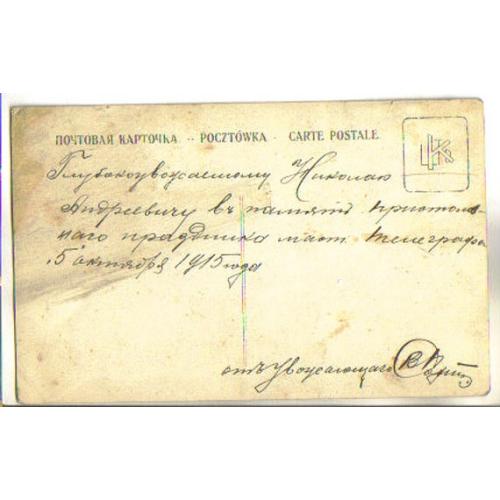 ПОЧТОВАЯ КАРТОЧКА -- POCZTÓWKA - CARTE POSTALE
Глубокоуважаемому Николаю
Андреевичу въ память престоль-
наго праздника маст. телеграфа
5 октября 1915 года
отъ уважающаго